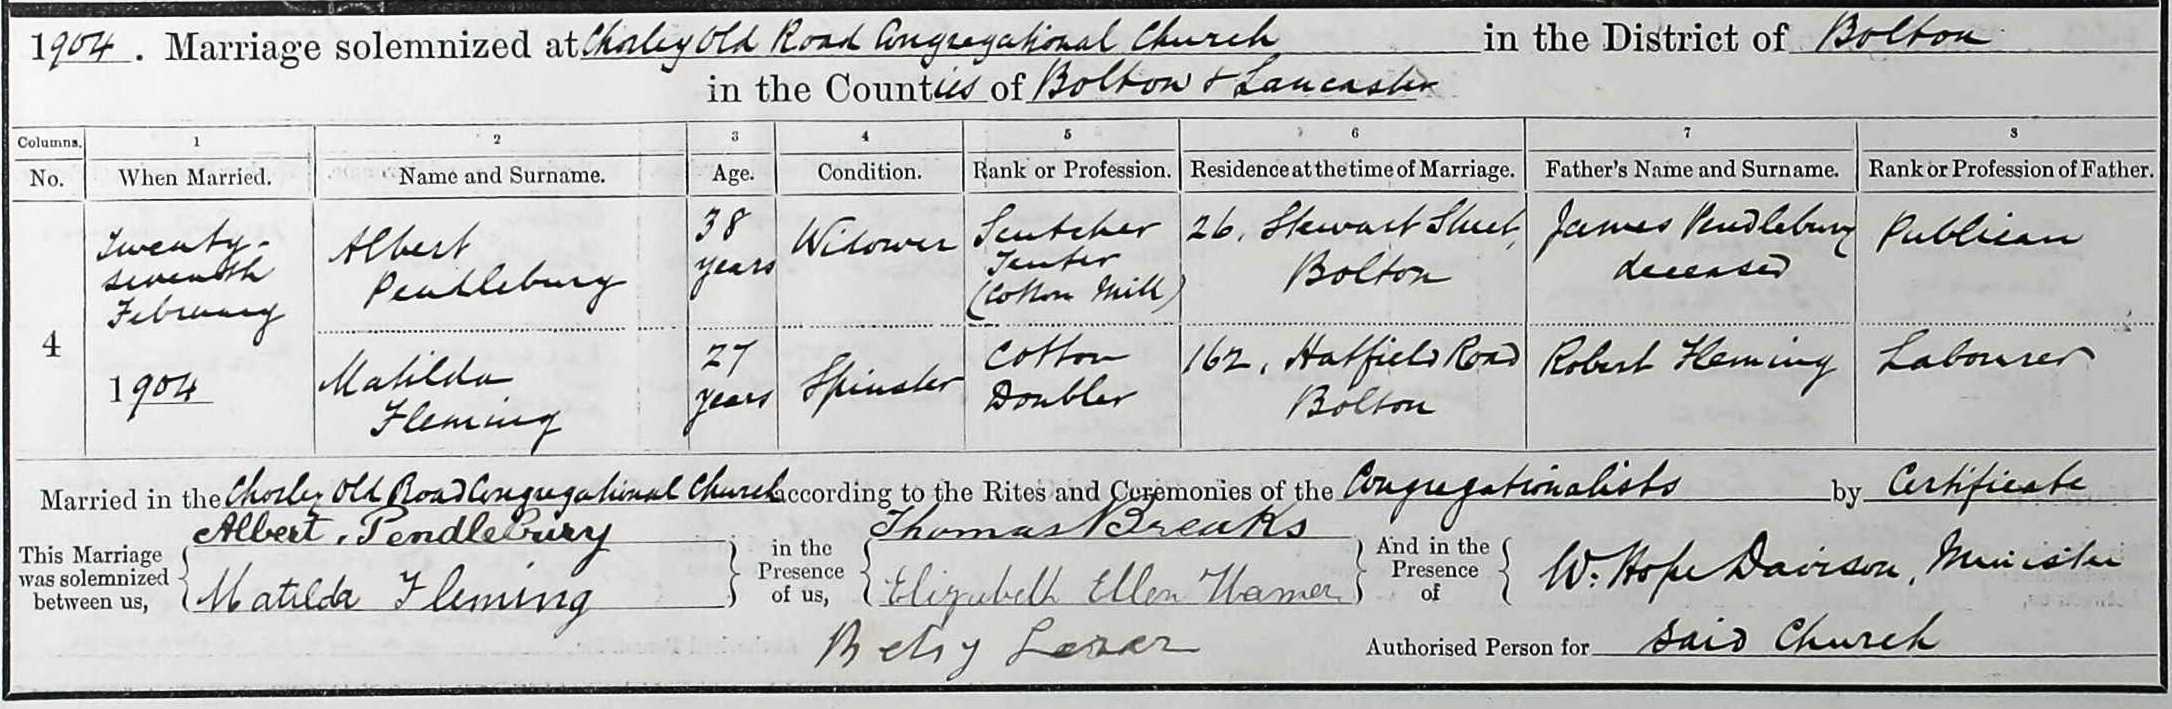 1904. Marriage solemnized at Chorley Old Road Congregational Church in the District of Bolton
in the Counties of Bolton & Lancaster
Columns. 1 2 3 4 5 6 7 8
No. When Married. Name and Surname. Age. Condition. Rank or Profession. Residence at the time of Marriage. Father's Name and Surname. Rank or Profession of Father.
4
Twenty-
seventh
February
1904
Albert
Pendlebury
38
years
Widower
Scutcher
Tenter
(Cotton Mill)
26, Stewart Street,
Bolton
James Pendlebury
deceased
Publican
Matilda
Fleming
27
years
Spinster
Cotton
Doubler
162, Hatfield Road
Bolton
Robert Fleming
Labourer
Married in the Chorley Old Road Congregational Church according to the Rites and Ceremonies of the Congregationalists by Certificate
This Marriage
was solemnized
between us,
Albert Pendlebury
Matilda Fleming
in the
Presence
of us,
Thomas Breaks
Elizabeth Ellen Hamer
Betsy
And in the
Presence
of
W. Hope Davison, Minister
Authorised Person for said Church